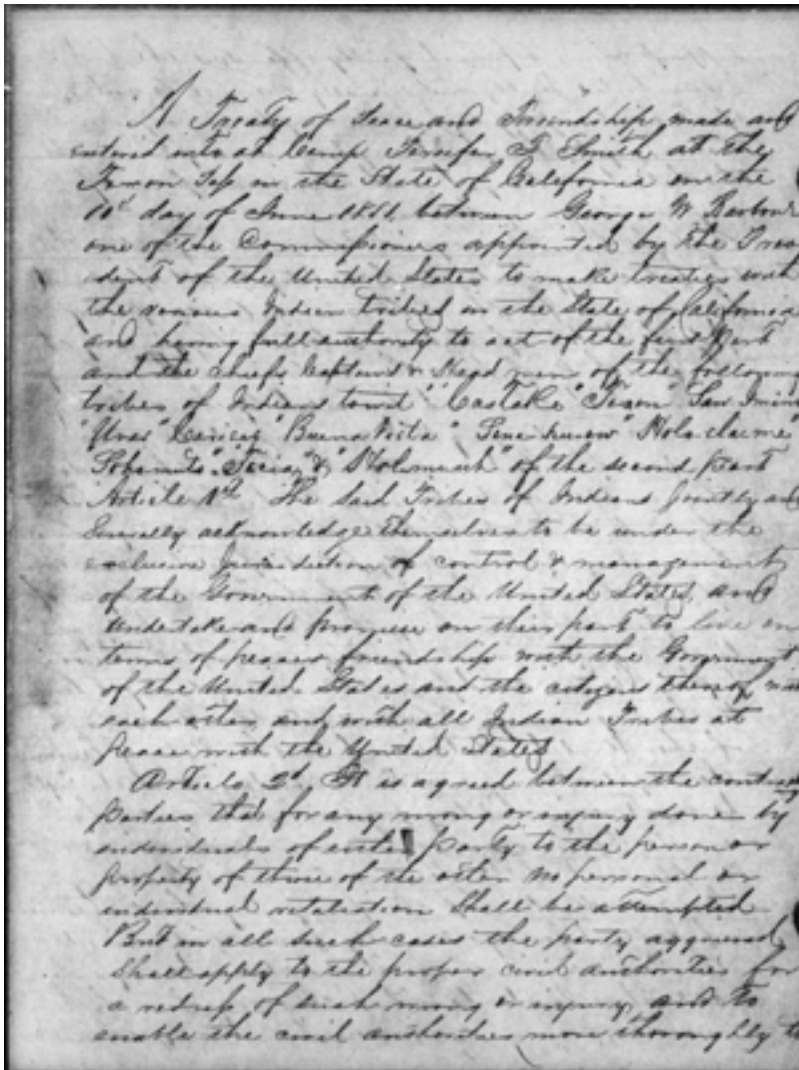 A Treaty of Peace and Friendship made and
entered into at Camp Persifer F Smith at the
Texon Pass in the State of California on the
10th day of June 1851 between George W Barbour
one of the Commissioners appointed by the Presi
dent of the United States to make treaties with
the various Indian tribes in the State of California
and having full authority to act of the first part
and the chiefs Captains & Head men of the following
tribes of Indians towit "Castake" "Texon" San Imirio
"Uvas" "Carises" "Buena Vista" "Holoclame"
"Sohonuts" "Tocia" & "Holmiuh" of the second part
Article 1st The said Tribes of Indians Jointly and
Severally acknowledge themselves to be under the
exclusive Jurisdiction of control & management
of the Government of the United States, and
undertake and promise on their part to live on
terms of peace & friendship with the Government
of the United States and the citizens thereof, with
each other and with all Indian Tribes at
peace with the United States
Article 2d. It is agreed between the contracting
parties that for any wrong or injury done by
individuals of either party to the person or
property of those of the other no personal or
individual retaliation Shall be attempted
But in all such cases the party aggrieved
Shall apply to the proper civil authorities for
a redress of such wrong or injury, and to
enable the civil authorities more thoroughly to